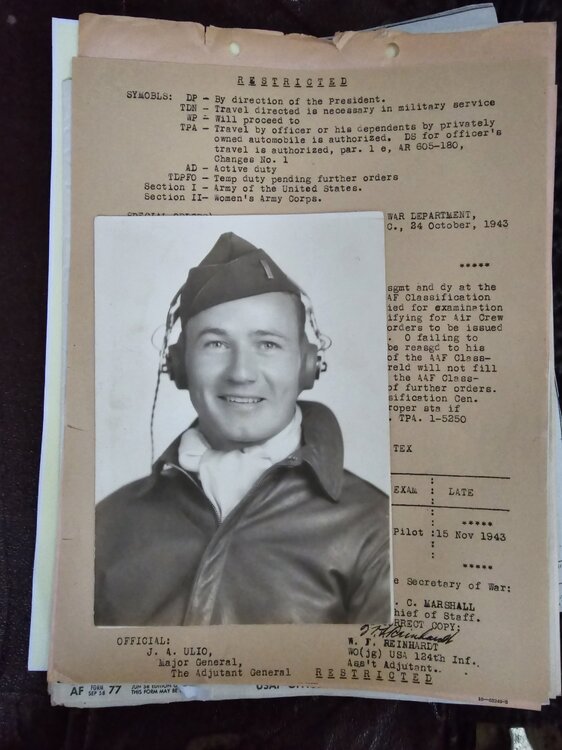 RESTRICTED
SYMOBLS: DP - By direction of the President.
TDN - Travel directed is necessary in military service
WP - Will proceed to
TPA - Travel by officer or his dependents by privately
owned automobile is authorized. DS for officer's
travel is authorized, par. 1 e, AR 605-180,
Changes No. 1
AD - Active duty
TDPFO - Temp duty pending further orders
Section I - Army of the United States.
Section II- Women's Army Corps.
WAR DEPARTMENT,
C., 24 October, 1943
*****
sgmt and dy at the
AF Classification
ied for examination
ifying for Air Crew
orders to be issued
. O failing to
be reasgd to his
of the AAF Class-
reld will not fill
the AAF Class-
of further orders.
sification Cen.
roper sta if
. TPA. 1-5250
TEX
EXAM : DATE
*****
Pilot :15 Nov 1943
*****
e Secretary of War:
. C. MARSHALL
hief of Staff.
RRECT COPY:
OFFICIAL:
J. A. ULIO,
Major General,
The Adjutant General
W. F. REINHARDT
WO(jg) USA 124th Inf..
Ass't Adjutant..
RESTRICTED
AF FORM SEP 58 77
THIS FORM MAY BE